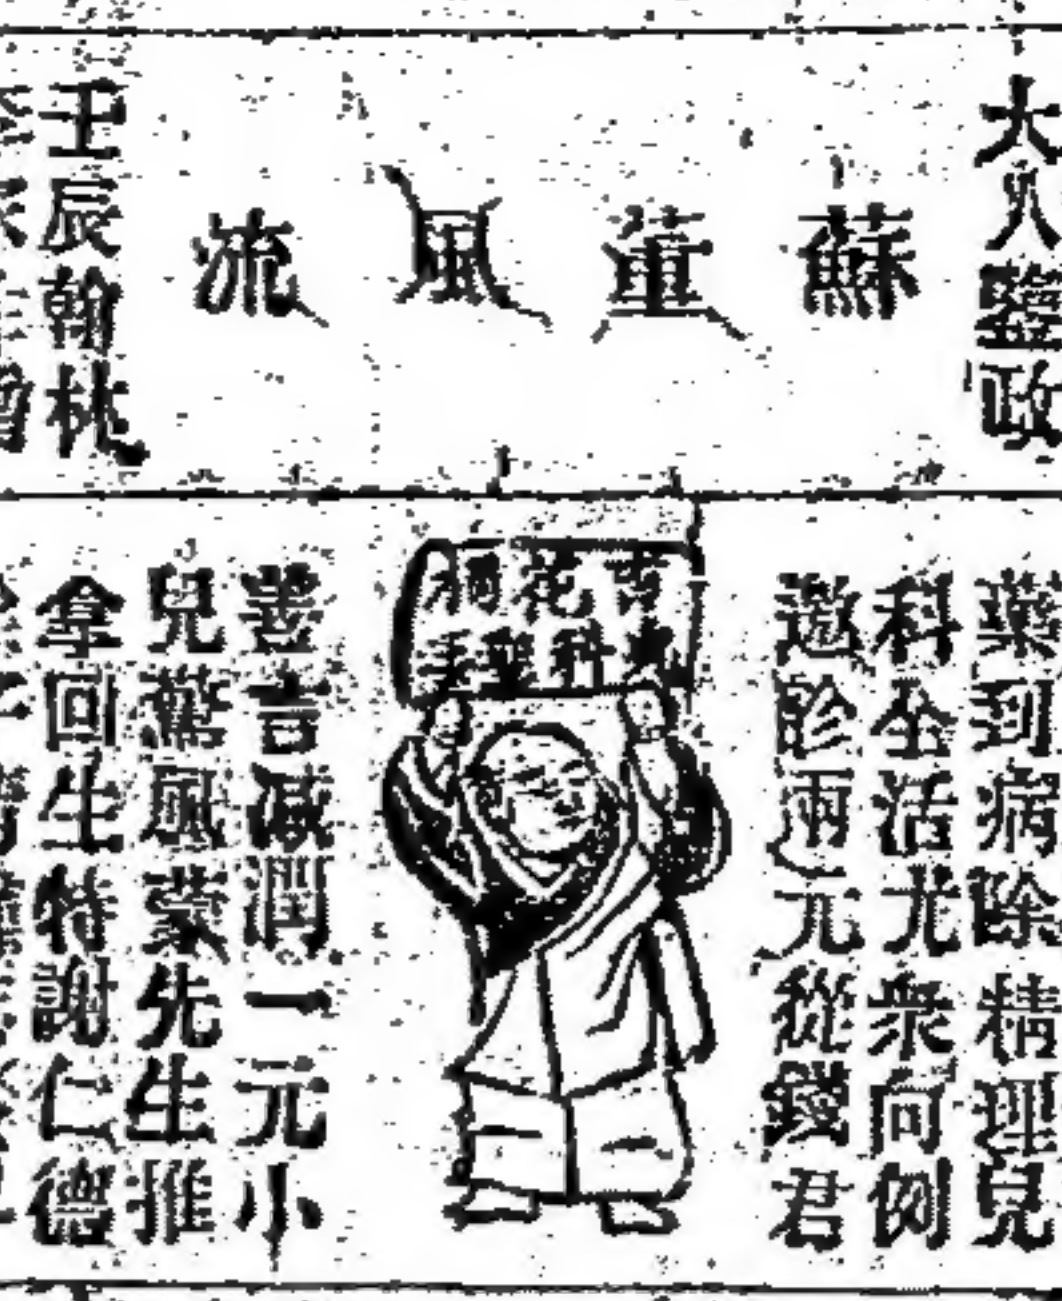 大人鑒政
蘇董風流
壬辰翰林
藥到病除精理兒
科全活尤衆向例
邀診兩元從錢君
杏花
科聖手
善言减潤一元小
兒驚風蒙先生推
拿回生特謝仁德